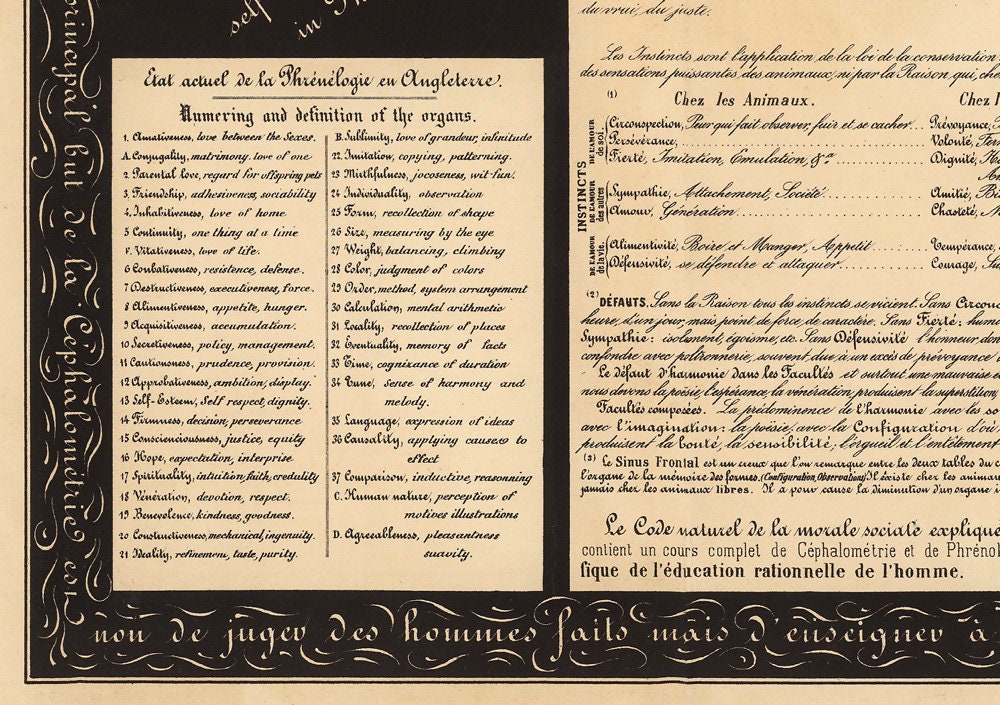 self
in
principal but de la Céphalométrie est
non de juger des hommes faits mais d'enseigner à
Etat actuel de la Phrénélogie en Angleterre.
Numering and definition of the organs.
1. Amativeness, love between the Sexes.
A. Conjugality, matrimony. love of one
2. Parental love, regard for offspring pets
3. Friendship, adhesiveness, sociability
4. Inhabitiveness, love of home
5 Continuity, one thing at a time
F. Vitativeness, love of life.
6 Combativeness, resistence, defense.
7 Destructiveness, executiveness, force.
8 Alimentiveness, appetite, hunger.
9 Acquisitiveness, accumulation.
10 Secretiveness, policy, management.
11 Cautiousness, prudence, provision.
12 Approbativeness, ambition, display.
13 Self-Esteem, Self respect, dignity.
14 Firmness, decision, perseverance
15 Conscienciousness, justice, equity
16 Hope, expectation, interprise
17 Spirituality, intuition, faith, credulity
18 Vénération, devotion, respect.
19 Benevolence, kindness, goodness.
20 Constructiveness, mechanical, ingenuity.
21 Ideality, refinement, taste, purity.
B. Sublimity, love of grandeur, infinitude
22. Imitation, copying, patterning.
23 Mirthfulness, jocoseness, wit-fun.
24 Individuality, observation
25 Form, recollection of shape
26 Size, measuring by the eye
27 Weight, balancing, climbing
28 Color, judgment of colors
29 Order, method, system arrangement
30 Calculation, mental arithmetic
31 Locality, recollection of places
32 Eventuality, memory of facts
33 Time, cognixance of duration
34 Tune, sense of harmony and
melody.
35 Language, expression of ideas
36 Causality, applying causes to
effect
37 Comparison, inductive, reasonning
C. Human nature, perception of
motives illustrations
D. Agreeableness, pleasantness
suavity.
du vrai, du juste.
Les Instincts sont l'application de la loi de la conservation
des sensations puissantes des animaux, ni par la Raison qui, che
(1) Chez les Animaux. Chez l
INSTINCTS
DE L'AMOUR de soi.
Circonspection, Peur qui fait observer, fuir et se cacher... Prévoyance,
Persévérance, Volonté, Fer
Fierté, Imitation, Emulation, &a Dignité,
DE L'AMOUR des autres
Sympathie, Attachement, Société Amitié, Bi
Amour, Génération Chasteté,
DE L'AMOUR de la vie.
Alimentivité, Boire et Manger, Appetit Tempérance,
Défensivité, se défendre et attaquer Courage, Sa
(2) DÉFAUTS. Sans la Raison tous les instincts se vicient. Sans Circons
heure, d'un jour, mais point de force de caractère. Sans Fierté: hum
Sympathie: isolement, égoïsme, etc. Sans Défensivité l'honneur, don
confondre avec poltronnerie, souvent due à un excès de prévoyance
Le défaut d'harmonie dans les Facultés et surtout une mauvaise é
nous devons la poésie, l'espérance, la vénération, produisent la superstition
Facultés composées. La prédominence de l'harmonie avec les so
avec l'imagination: la poésie, avec la Configuration d'où
produisent la bonté, la sensibilité; l'orgueil et l'entêtement
(3) Le Sinus Frontal est un creux que l'on remarque entre les deux tables du c
l'organe de la mémoire des formes. (Configuration, Observation) Il éxiste chez les anima
jamais chez les animaux libres. Il a pour cause la diminution d'un organe
Le Code naturel de la morale sociale explique
contient un cours complet de Céphalométrie et de Phrénol
fique de l'éducation rationnelle de l'homme.